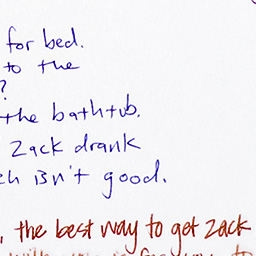 for bed.
to the
?
the bathtub.
Zack drank
ch isn't good.
, the best way to get Zack